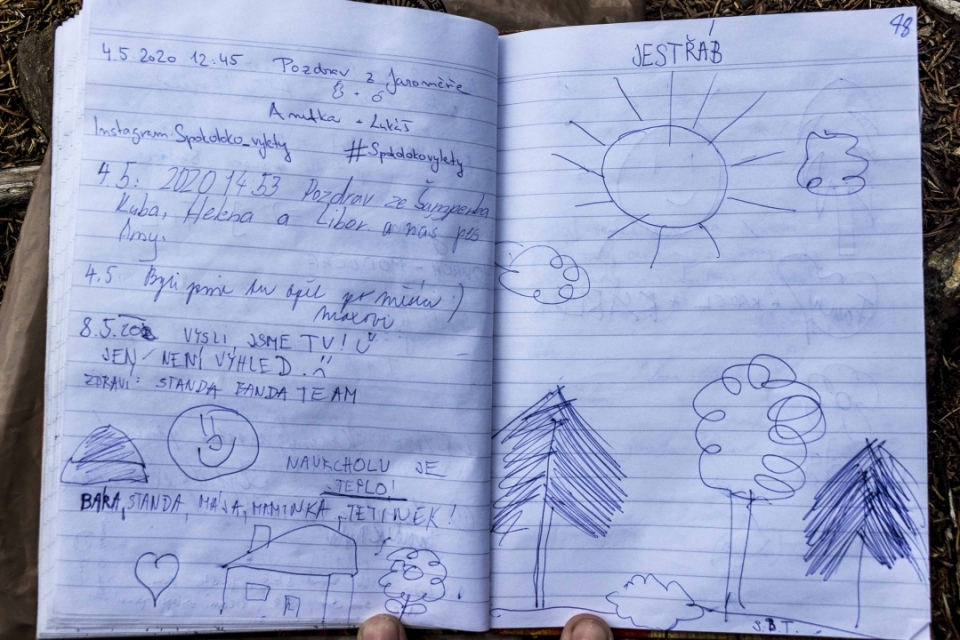 4.5.2020 12:45 Pozdrav z Jaroměře
Anitka + Lukáš
Instagram: #Spotoboko_vylety
4.5. 2020 14.53 Pozdrav ze Šumperka
Kuba, Helena a Libor a náš pes
Amy.
4.5. Byli jsme tu opět po měsíci :)
8.5.20 VYŠLI JSME TU! Ü
JEN NENÍ VÝHLED.
ZDRAVÍ: STANDA FANDA TEAM
NAVRCHOLU JE
TEPLO!
BÁRA, STANDA, MÁJA, MAMINKA, TETINEK!
48
JESTŘÁB
S.B.T.